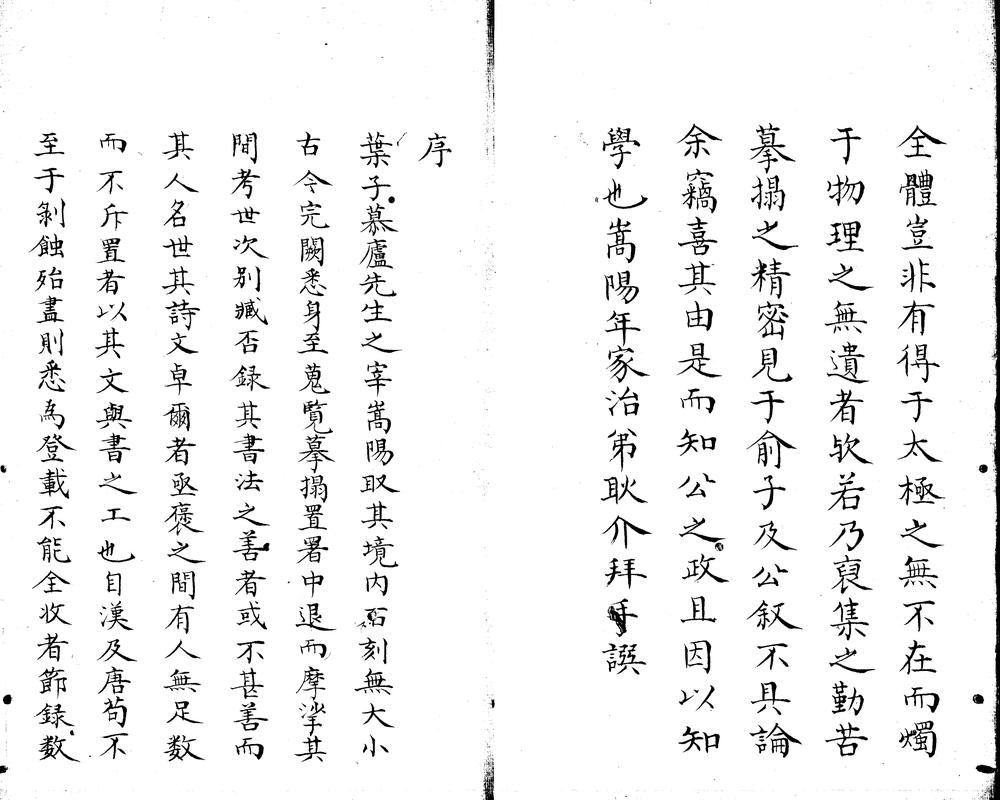 全體豈非有得于太極之無不在而燭
于物理之無遺者欤若乃裒集之勤苦
摹搨之精密見于俞子及公叙不具論
余竊喜其由是而知公之政且因以知
學也嵩陽年家治弟耿介拜手譔
序
葉子慕廬先生之宰嵩陽取其境内石刻無大小
古今完闕悉身至蒐覧摹搨置署中退而摩挲其
間考世次别臧否録其書法之善者或不甚善而
其人名世其詩文卓爾者亟褒之間有人無足数
而不斥置者以其文與書之工也自漢及唐茍不
至于剥蝕殆盡則悉為登載不能全收者節録数